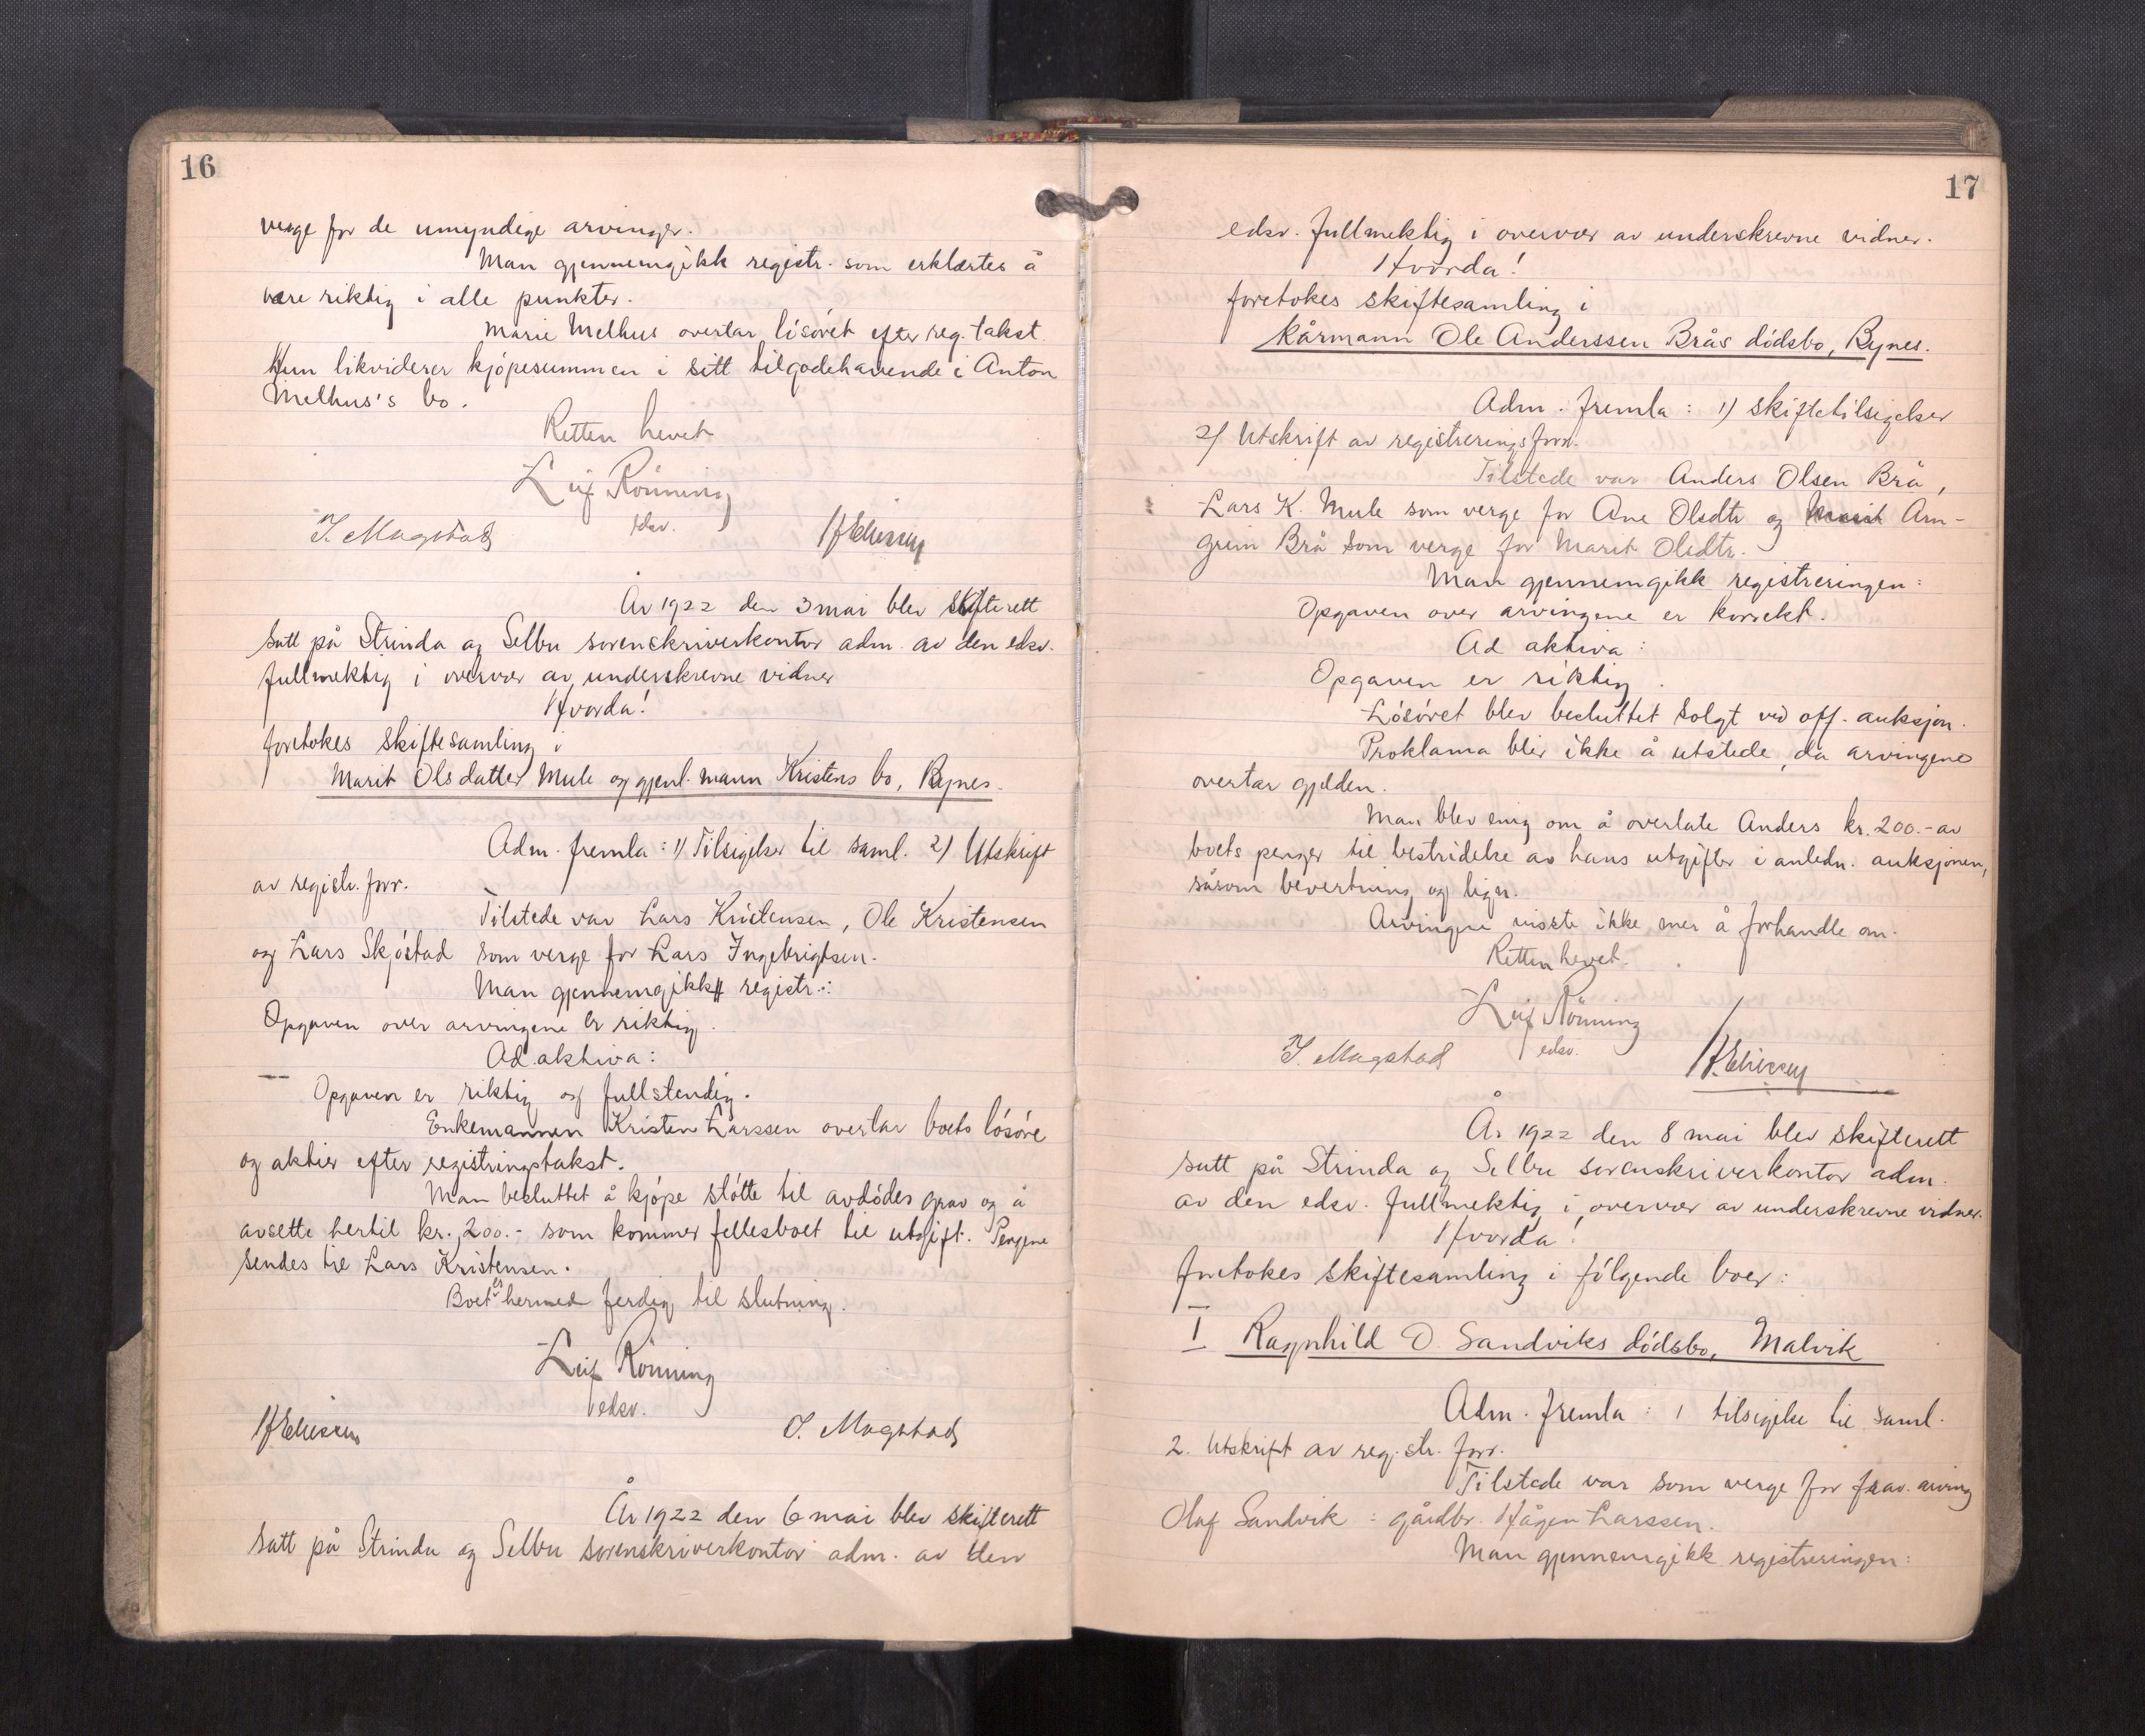 16
verge for de umyndige arvinger.
Man gjennemgikk registr. som erklærtes å
være riktig i alle punkter.
Marie Melhus overtar lösöret efter reg. takst.
Hun likviderer kjöpesummen i sitt tilgodehavende i Anton
Melhus's bo.
Retten hevet
Leif Rönning
edsv.
J. Magstad
År 1922 den 3 mai blev skifterett
satt på Strinda og Selbu sorenskriverkontor adm. av den edsv.
fullmektig i overvær av underskrevne vidner
Hvorda!
foretokes skiftesamling i
Marit Olsdatter Mule og gjenl. mann Kristens bo, Bynes.
Adm. fremla: 1) Tilsigelser til saml. 2) Utskrift
av registr. forr.
Tilstede var Lars Kristensen, Ole Kristensen
og Lars Skjöstad som verge for Lars Ingebrigtsen.
Man gjennemgikk registr.:
Opgaven over arvingene er riktig.
Ad aktiva:
Opgaven er riktig og fullstendig.
Enkemannen Kristen Larssen overtar boets lösöre
og aktier efter registringstakst.
Man besluttet å kjöpe stötte til avdödes grav og å
avsette hertil kr. 200.- som kommer fellesboet til utgift. Pengene
sendes til Lars Kristensen.
Boet er hermed ferdig til slutning.
Leif Rönning
edsv.
J. Magstad
År 1922 den 6 mai blev skifterett
satt på Strinda og Selbu sorenskriverkontor adm. av den
17
edsv. fullmektig i overvær av underskrevne vidner.
Hvorda!
foretokes skiftesamling i
kårmann Ole Anderssen Brås dödsbo, Bynes.
Adm. fremla: 1) skiftetilsigelser
2) Utskrift av registreringsforr.
Tilstede var Anders Olsen Brå,
Lars K. Mule som verge for Ane Olsdtr og Marit Arn-
grim Brå som verge for Marit Olsdtr.
Man gjennemgikk registreringen:
Opgaven over arvingene er korrekt.
Ad aktiva:
Opgaven er riktig.
Lösöret blev besluttet solgt ved off. auksjon.
Proklama blir ikke å utstede, da arvingene
overtar gjelden.
Man blev enig om å overlate Anders kr. 200.- av
boets penger til bestridelse av hans utgifter i anledn. auksjonen,
såsom bevertning og lign.
Arvingene visste ikke mer å forhandle om.
Retten hevet.
Leif Rönning
edsv.
J. Magstad
År 1922 den 8 mai blev skifterett
satt på Strinda og Selbu sorenskriverkontor adm.
av den edsv. fullmektig i overvær av underskrevne vidner.
Hvorda!
foretokes skiftesamling i fölgende boer:
I Ragnhild O. Sandviks dödsbo, Malvik
Adm. fremla: 1 tilsigelse til saml.
2. Utskrift av reg.str. forr.
Tilstede var som verge for frav. arving
Olaf Sandvik: gårdbr. Hågen Larssen.
Man gjennemgikk registreringen: